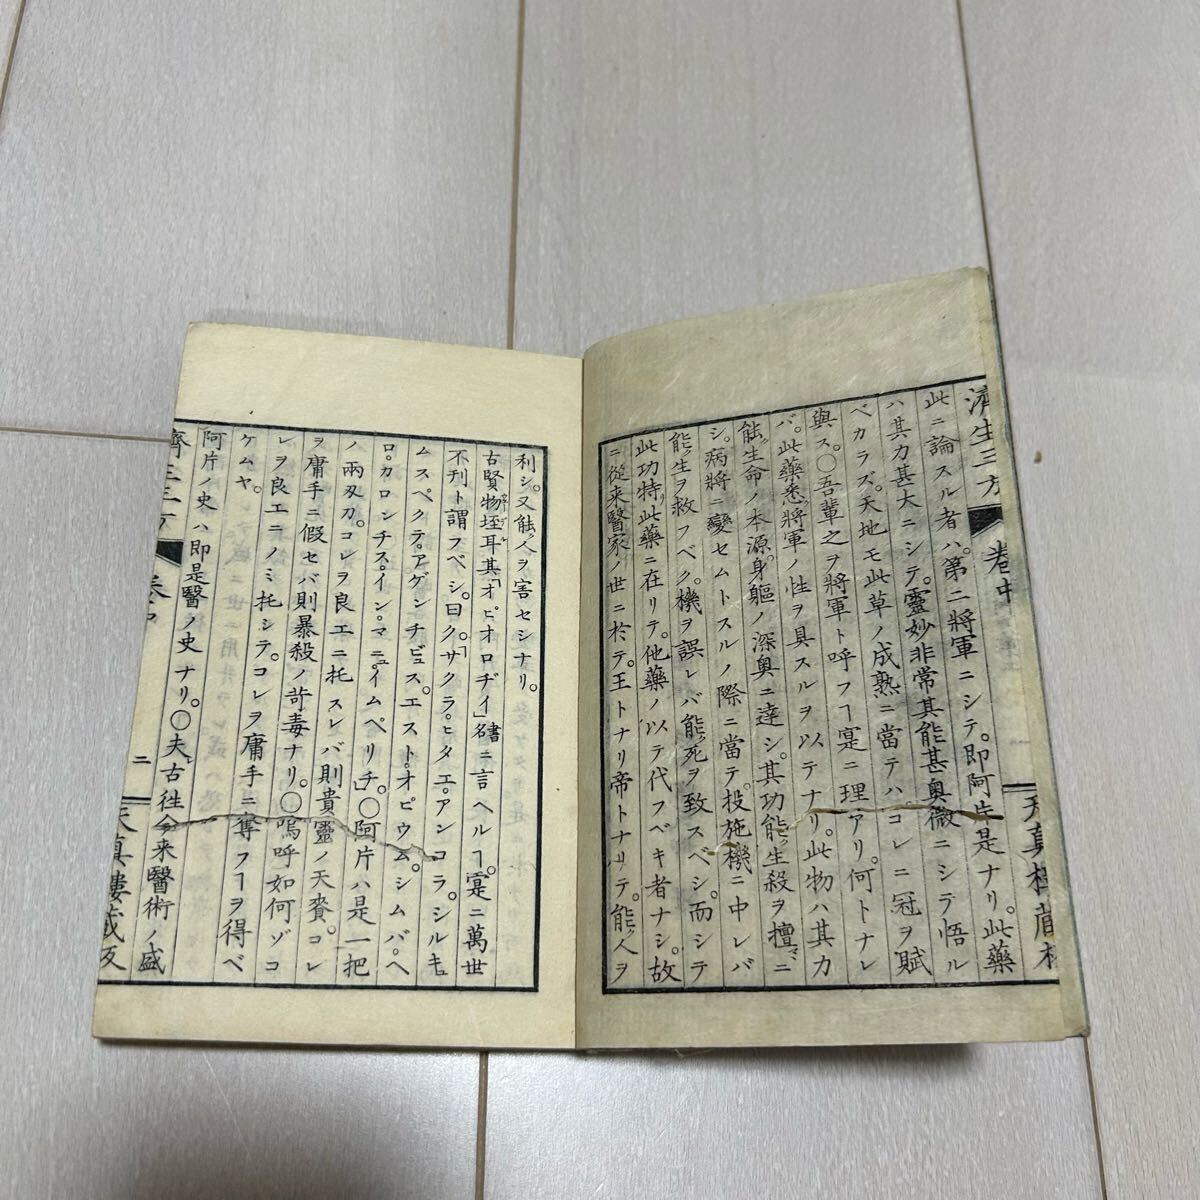 濟生三方 卷中 天真樓藏板
此ニ論スル者ハ。第二將軍ニシテ。即阿片是ナリ。此藥
ハ其力甚大ニシテ。靈妙非常其能甚奥微ニシテ悟ル
ベカラズ。天地モ此草ノ成熟ニ當テハ。コレニ冠ヲ賦
與ス。〇吾輩之ヲ將軍ト呼フヿ寔ニ理アリ。何トナレ
バ。此藥悉ク將軍ノ性ヲ具スルヲ以テナリ。此物ハ其力
能ク生命ノ本源。身軀ノ深奥ニ達シ。其功能ク生殺ヲ擅ニ
シ。病將ニ變セムトスルノ際ニ當テ。投施機ニ中レバ
能ク生ヲ救フベク。機ヲ誤レバ能ク死ヲ致スベシ。而シテ
此功特リ此藥ニ在リテ。他藥ノ以テ代フベキ者ナシ。故
ニ從来醫家ノ世ニ於テ。王トナリ帝トナリテ。能ク人ヲ
利シ。又能ク人ヲ害セシナリ。
古賢物垤耳其「オピオロヂイ」書名ニ言ヘルヿ。寔ニ萬世
不刊ト謂フベシ。曰ク。「サクラ。ヒタエ。アンコラ。シルキュ
ムスペクテ。アゲンチビュス。エスト。オピウム。シムバ。ヘ
ロ。カロンチス。イン。マニュイムペリチ。」〇阿片ハ是一把
ノ兩刄刀。コレヲ良工ニ托スレバ則貴靈ノ天賚。コレ
ヲ庸手ニ假セバ則暴殺ノ苛毒ナリ。〇嗚呼如何ゾコ
レヲ良工ニノミ托シテ。コレヲ庸手ニ奪フヿヲ得ベ
ケムヤ。
阿片ノ史ハ即是醫ノ史ナリ。〇夫古徃今来醫術ノ盛
濟生三方 卷中 二 天真樓藏板